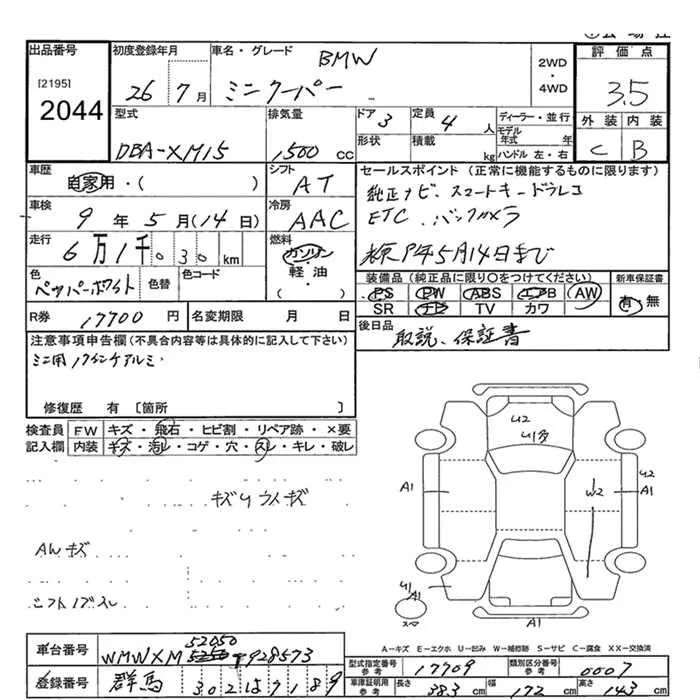 出品番号 初度登録年月 車名・グレード BMW 評価点
[2195] 2WD・4WD
2044 26 7月 ミニクーパー 3.5
型式 排気量 ドア 3 定員 4人 ディーラー・並行 外装 内装
DBA-XM15 1,500 cc 形状 積載 kg モデル年式 年 C B
ハンドル 左・右
車歴 自家用・( ) シフト AT セールスポイント (正常に機能するものに限ります)
純正ナビ、スマートキー、ドラレコ
車検 9年5月(14日) 冷房 AAC ETC、バックカメラ
走行 6万1千030km 燃料 ガソリン・軽油 ( ) 9年5月14日まで
色 ペッパーホワイト 色替 色コード 装備品 (純正品に限り○をつけてください) 新車保証書
PS PW ABS エアB AW 有・無
SR ナビ TV カワ
R券 17700円 名変期限 月 日 後日品 取説、保証書
注意事項申告欄 (不具合内容等は具体的に記入して下さい)
ミニ用17インチアルミ
修復歴 有 [箇所 ]
検査員記入欄 FW キズ・飛石・ヒビ割・リペア跡・×要
内装 キズ・汚レ・コゲ・穴・スレ・キレ・破レ
U2
A1 W2 U2 A1
AWキズ
U1 A1
A1
A-キズ E-エクボ U-凹み W-補修跡 S-サビ C-腐食 XX-交換済
車台番号 52050
WMWXM 928573
型式指定番号 参考 17709 類別区分番号 参考 0007
登録番号 群馬 302 7189 車庫証明用 参考 長さ 383cm 幅 172cm 高さ 143cm